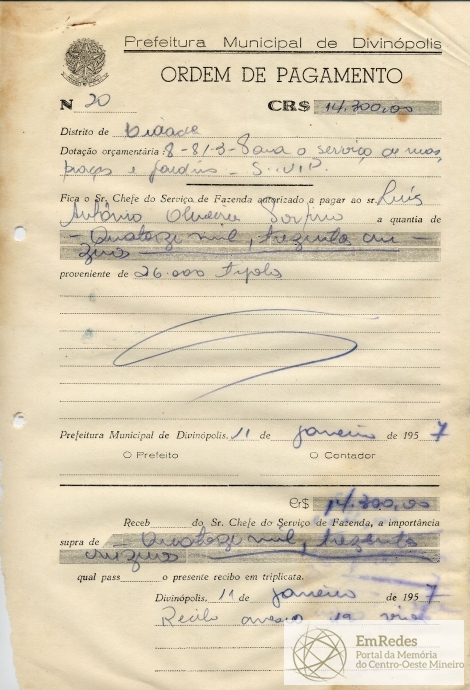 Prefeitura Municipal de Divinópolis
ORDEM DE PAGAMENTO
N 20 CR$ 14.300,00
Distrito de Cidade
Dotação orçamentária : 8-81-3 - Para o serviço de ruas,
praças e jardins -
Fica o Sr. Chefe do Serviço de Fazenda autorizado a pagar ao sr. Luís
Antônio Oliveira a quantia de
- Quatorze mil, trezentos cru-
zeiros
proveniente de 26.000 tijolos
Prefeitura Municipal de Divinópolis, 11 de janeiro de 1957
O Prefeito O Contador
Cr$ 14.300,00
Receb do Sr. Chefe do Serviço de Fazenda, a importância
supra de - Quatorze mil, trezentos
cruzeiros
qual pass o presente recibo em triplicata.
Divinópolis, 11 de janeiro de 1957
Recibo anexo na via
EmRedes
Portal da Memória
do Centro-Oeste Mineiro